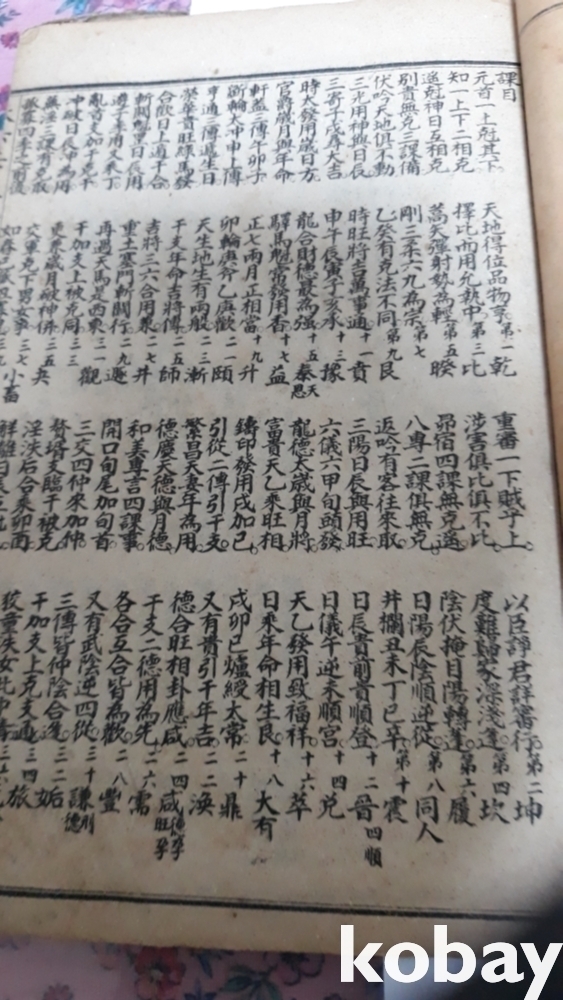 課目
元首一上剋其下 天地得位品物亨第一乾 重審一下賊子上 以臣諍君詳審行第二坤
知一上下二相克 擇比而用允執中第三比 涉害俱比俱不比 度難歸家深淺逢第四坎
遙剋神日互相克 蒿矢彈射勢為輕第五睽 昴宿四課無克遙 陰伏掩目陽轉蓬第六履
別責無克三課備 剛三柔六九為宗第七 八專二課俱無克 日陽辰陰順逆從第八同人
伏吟天地俱不動 乙癸有克法不同第九艮 返吟有客往來取 井欄丑未丁己辛第十震
三光用神與日辰 時旺將吉萬事通十一賁 三陽日辰與用旺 日辰貴前貴順登十二晉四順
三寄子戌辱大吉 申午辰寅子亥承十三豫 六儀六甲旬頭發 日儀午逆未順宮十四兌
時太發用歲日方 龍合財德最為強十五泰天恩 龍德太歲與月將 天乙發用致福祥十六萃
官爵歲月與年命 驛馬魁常發用香十七益 富貴天乙乘旺相 日乘年命相生良十八大有
軒蓋三傳午卯子 正七兩月正相當十九升 鑄印發用戌加巳 戌卯巳爐綬太常二十鼎
斲輪太冲申上傳 卯輪庚斧乙庚歡二一頤 引從二傳引干支 又有貴引干年吉二二渙
亨通三傳遞生日 天生地生有兩般二三漸 繁昌夫妻年為用 德合旺相卦應咸二四咸德孕旺孕
榮華貴旺祿馬發 干支年命吉將傳二五師 德慶天德與月德 干支二德用為先二六需
合歡日上遁干合 吉將三六合用泉二七井 和美專言四課事 各合互合皆為歡二八豐
斬關魁罡日辰用 重土塞門斬關行二九遯 閉口旬尾加旬首 又有武陰逆四從三十謙刑德
遊子季用又乘丁 再遇天馬是西東三一觀 三交四仲來加仲 三傳皆仲陰合逢三二姤
亂首支加干克干 干加支上被克同三三 贅壻支臨干被克 干加支上克支通三四旅
冲破日辰冲為用 更乘歲月破神併三五夬 淫泆后合乘卯酉 狡童泆女此中三六
蕪淫三課有克取 交車克下男女爭三七小畜 解離日辰
kobay